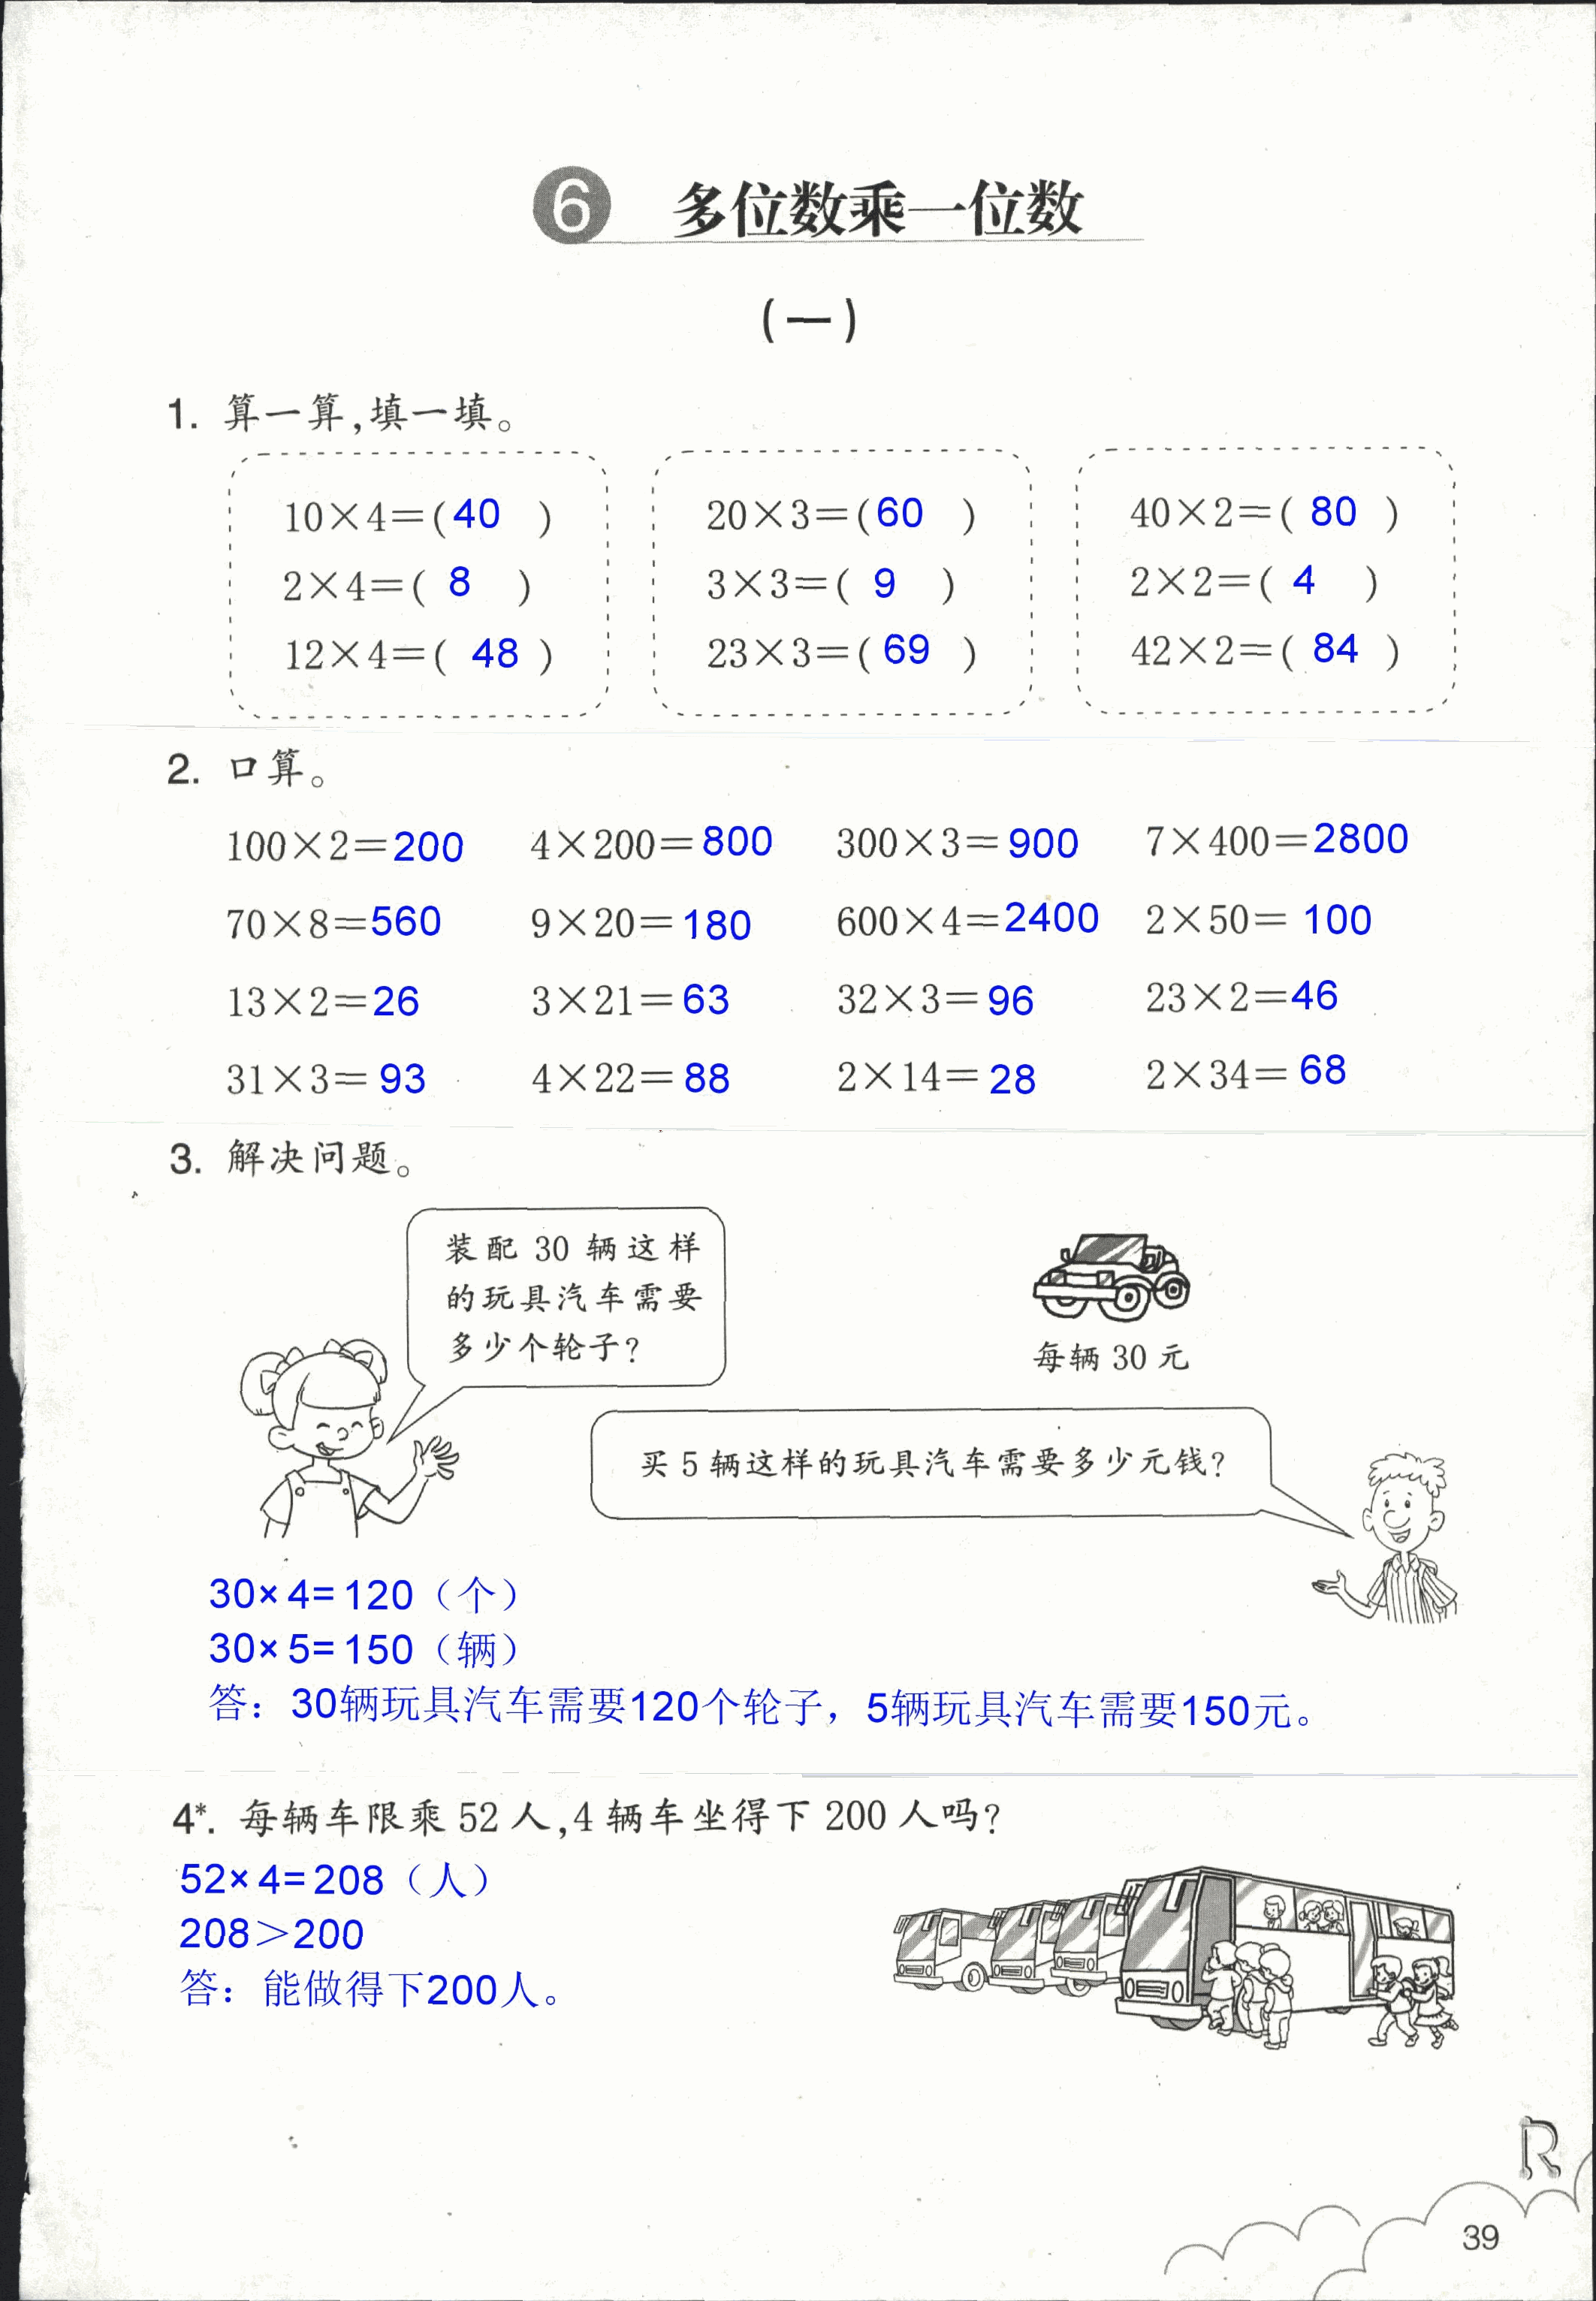 6 多位数乘一位数
(一)
1. 算一算,填一填。
10×4=(40 ) 20×3=(60 ) 40×2=( 80 )
2×4=( 8 ) 3×3=( 9 ) 2×2=( 4 )
12×4=( 48 ) 23×3=( 69 ) 42×2=( 84 )
2. 口算。
100×2=200 4×200=800 300×3=900 7×400=2800
70×8=560 9×20=180 600×4=2400 2×50=100
13×2=26 3×21=63 32×3=96 23×2=46
31×3=93 4×22=88 2×14=28 2×34=68
3. 解决问题。
装配 30 辆这样
的玩具汽车需要
多少个轮子?
每辆 30 元
买 5 辆这样的玩具汽车需要多少元钱?
30×4=120（个）
30×5=150（辆）
答：30辆玩具汽车需要120个轮子，5辆玩具汽车需要150元。
4*. 每辆车限乘 52 人,4 辆车坐得下 200 人吗?
52×4=208（人）
208＞200
答：能做得下200人。
R
39